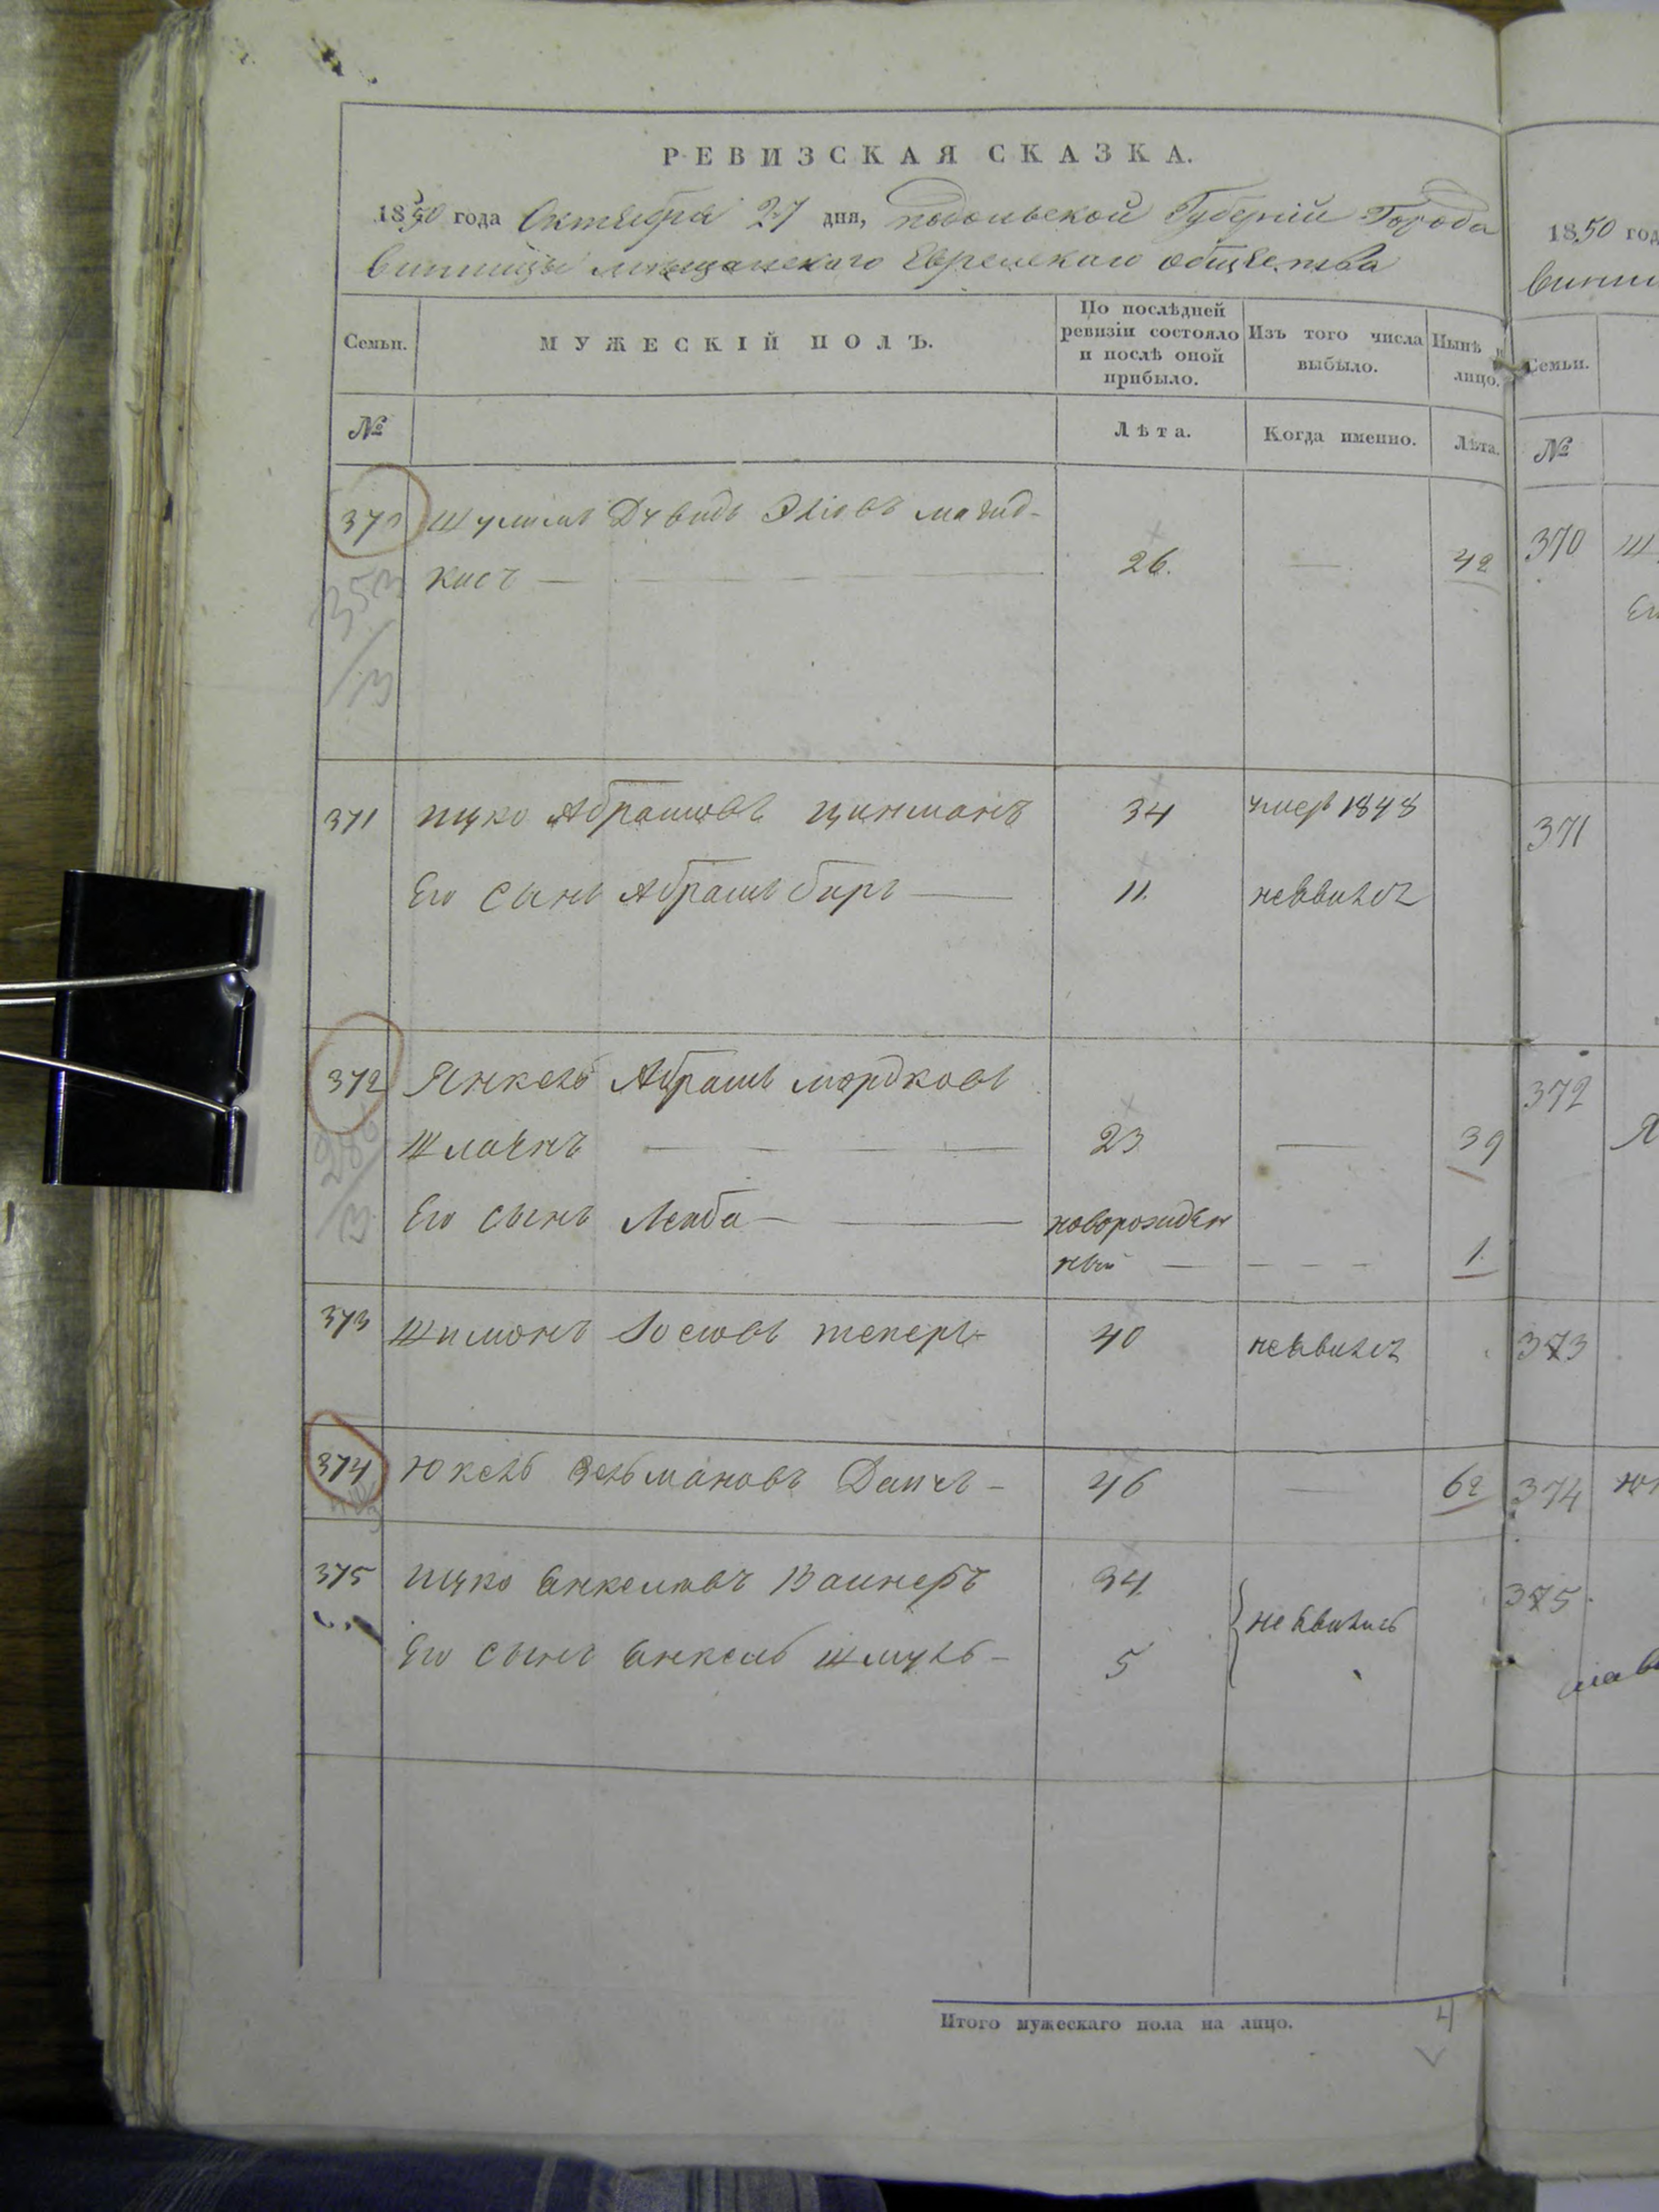 РЕВИЗСКАЯ СКАЗКА.
1850 года Октября 27 дня, подольской Губерніи Города
винницы мѣщанскаго Еврейскаго общества
Семьи.
МУЖЕСКІЙ ПОЛЪ.
По послѣдней ревизіи состояло и послѣ оной прибыло.
Изъ того числа выбыло.
Нынѣ лицо.
№
Лѣта.
Когда именно.
Лѣта.
370 Шулимъ Дувидъ
26. — 42
353
/3
371 ицко Абрамовъ цинманъ 34 умеръ 1848
Его сынъ Абрамъ беръ — 11. неявился
372 Янкель Абрамъ мордковъ
23 — 39
/3
Его сынъ Лейба — новорожден
ный — 1.
373 Шимонъ Іосіовъ 40 неявился
374 Юкель Зельмановъ Даичъ — 46 — 62
375 ицко Анкелювъ Ваинеръ 34
неявились
Его сынъ Анкель шмуль — 5
Итого мужескаго пола на лицо. 4
1850 год
винни
Семьи.
№
370 Ш
Ег
371
372
Я
373
374 Юк
375